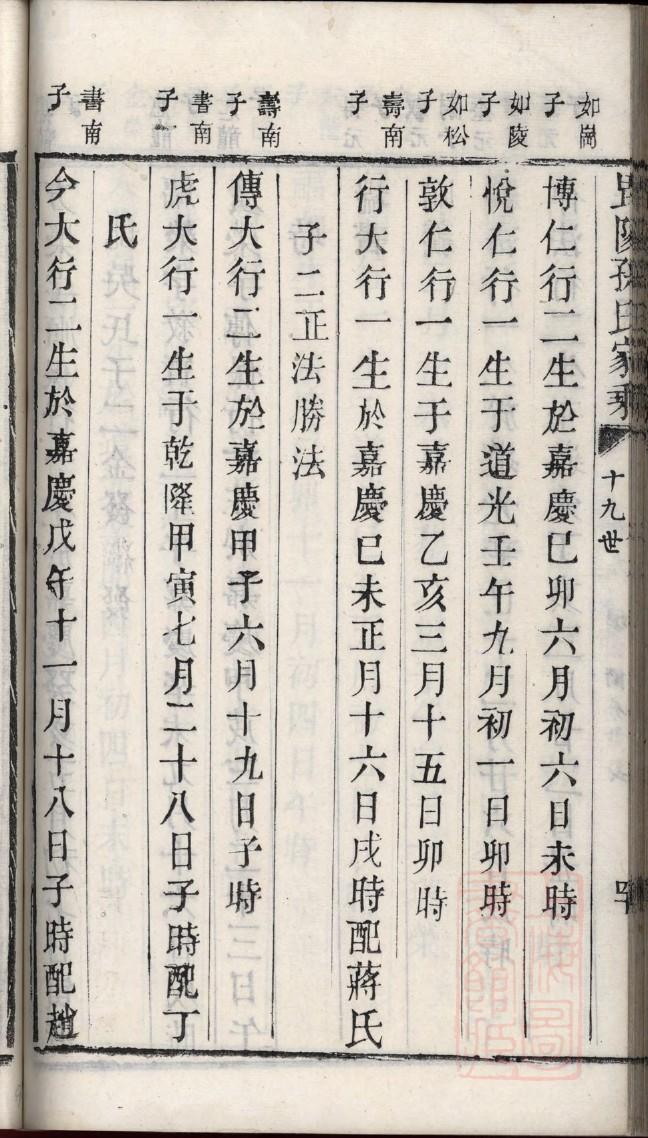 毘陵孫氏家乘
十九世
如崗子
博仁行二生於嘉慶巳卯六月初六日未時
如陵子
悅仁行一生于道光壬午九月初一日卯時
如松子
敦仁行一生于嘉慶乙亥三月十五日卯時
壽南子
行大行一生於嘉慶巳未正月十六日戌時配蔣氏
子二正法勝法
壽南子
傳大行二生於嘉慶甲子六月十九日子時
書南子
虎大行一生于乾隆甲寅七月二十八日子時配丁
氏
書南子
今大行二生於嘉慶戊午十一月十八日子時配趙
上海圖書館藏